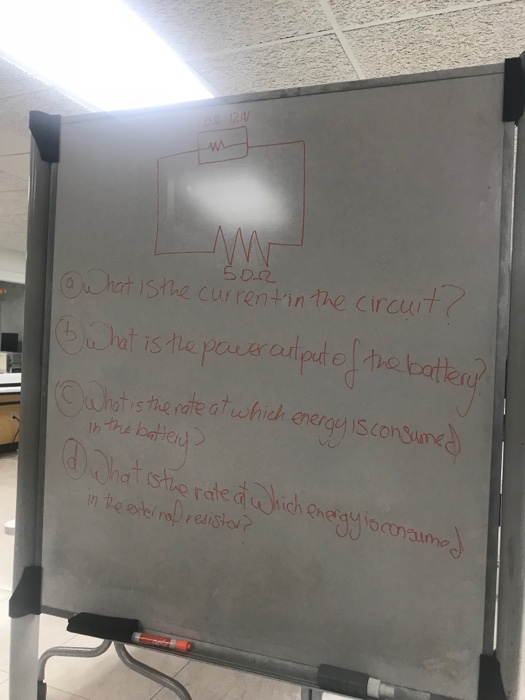 120V
50Ω
ⓐ What is the current in the circuit?
ⓑ What is the power output of the battery?
ⓒ What is the rate at which energy is consumed
in the battery?
ⓓ What is the rate at which energy is consumed
in the external resistor?